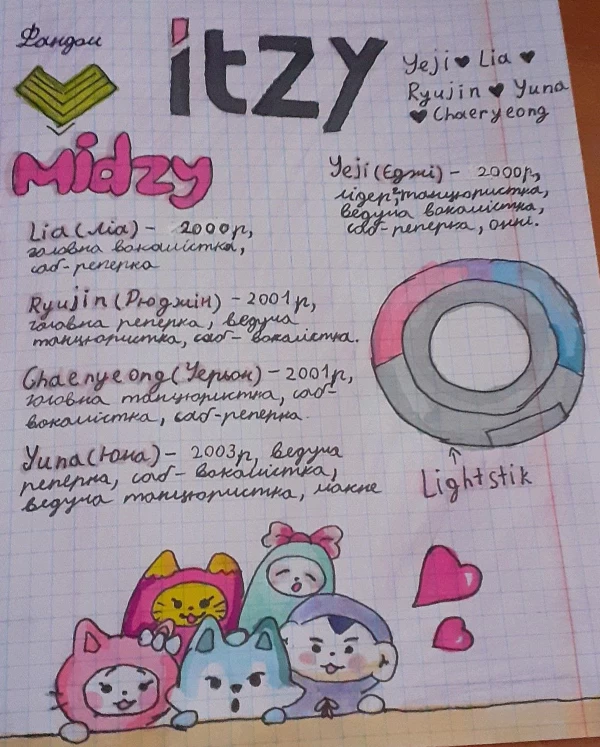 Фандом
itzy
Yeji♥ Lia ♥
Ryujin ♥ Yuna
♥ Chaeryeong
Midzy
Yeji(Єджі) - 2000р,
лідер, танцюристка,
ведуча вокалістка,
саб-реперка, онні.
Lia(Ліа) - 2000р,
головна вокалістка,
саб-реперка
Ryujin(Рюджін) - 2001р,
головна реперка, ведуча
танцюристка, саб-вокалістка.
Chaeryeong(Черьон) - 2001р,
головна танцюристка, саб-
вокалістка, саб-реперка.
Yuna(Юна) - 2003р, ведуча
реперка, саб-вокалістка,
ведуча танцюристка, макне
Lightstik